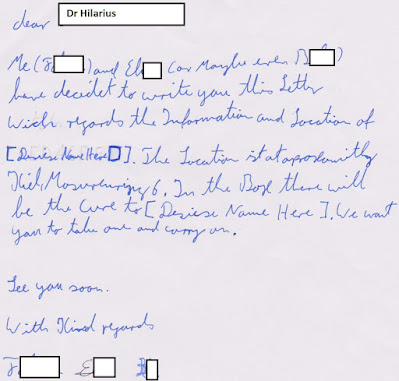 dear Dr Hilarius
Me ( ) and El (or Maybe even B )
have decidet to write you this Letter
Wich regards the Information and Location of
[Desiese Name Here]. The Location ist at
6. In the Box there will
be the Cure to [Desiese Name Here]. We want
you to take one and carry on.
See you soon.
With Kind regards
E